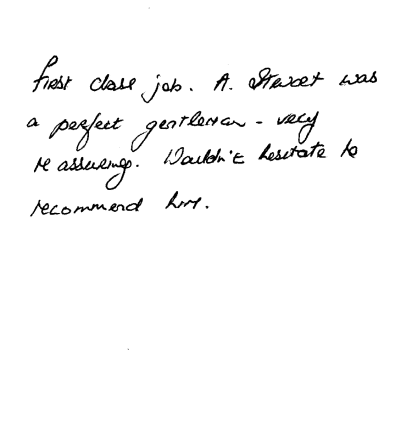 First class job. A. Stewart was
a perfect gentleman - very
reassuring. Wouldn't hesitate to
recommend him.